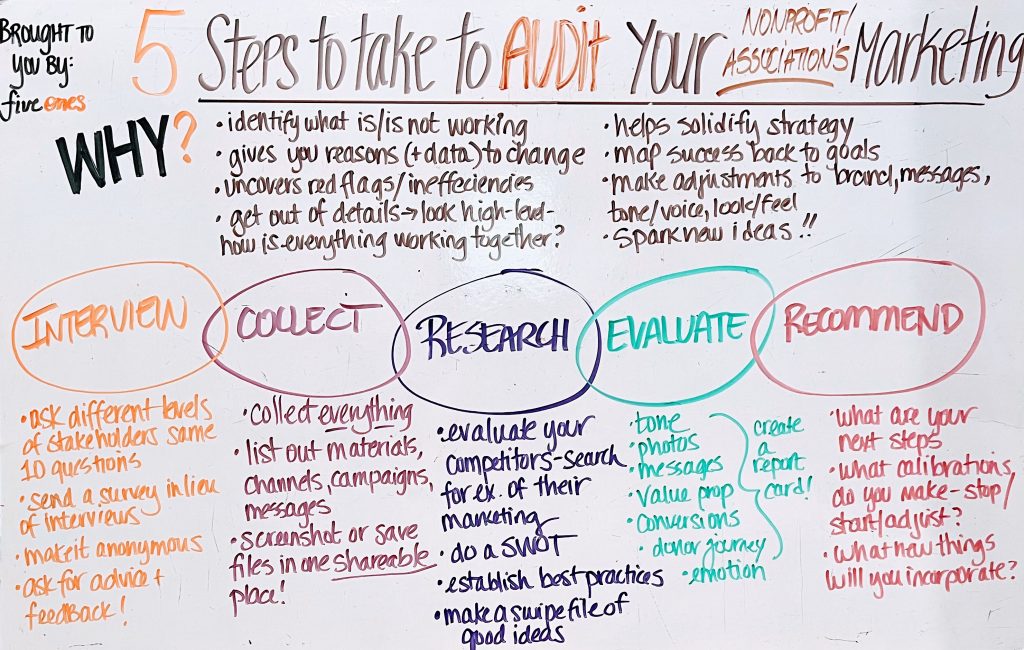 BROUGHT TO
YOU BY:
five ones
5 Steps to take to AUDIT Your NONPROFIT/
ASSOCIATION'S Marketing
WHY?
• identify what is/is not working
• gives you reasons (+ data) to change
• uncovers red flags/ineffeciencies
• get out of details → look high-level-
how is everything working together?
• helps solidify strategy
• map success back to goals
• make adjustments to brand, messages,
tone/voice, look/feel
• spark new ideas!!
INTERVIEW
• ask different levels
of stakeholders same
10 questions
• send a survey in lieu
of interviews
• make it anonymous
• ask for advice +
feedback!
COLLECT
• collect everything
• list out materials,
channels, campaigns,
messages
• screenshot or save
files in one shareable
place!
RESEARCH
• evaluate your
competitors-search
for ex. of their
marketing
• do a SWOT
• establish best practices
• make a swipe file of
good ideas
EVALUATE
• tone
• photos
• messages
• value prop
• conversions
• donor journey
• emotion
create
a
report
card!
RECOMMEND
• what are your
next steps
• what calibrations,
do you make-stop/
start/adjust?
• what new things
will you incorporate?